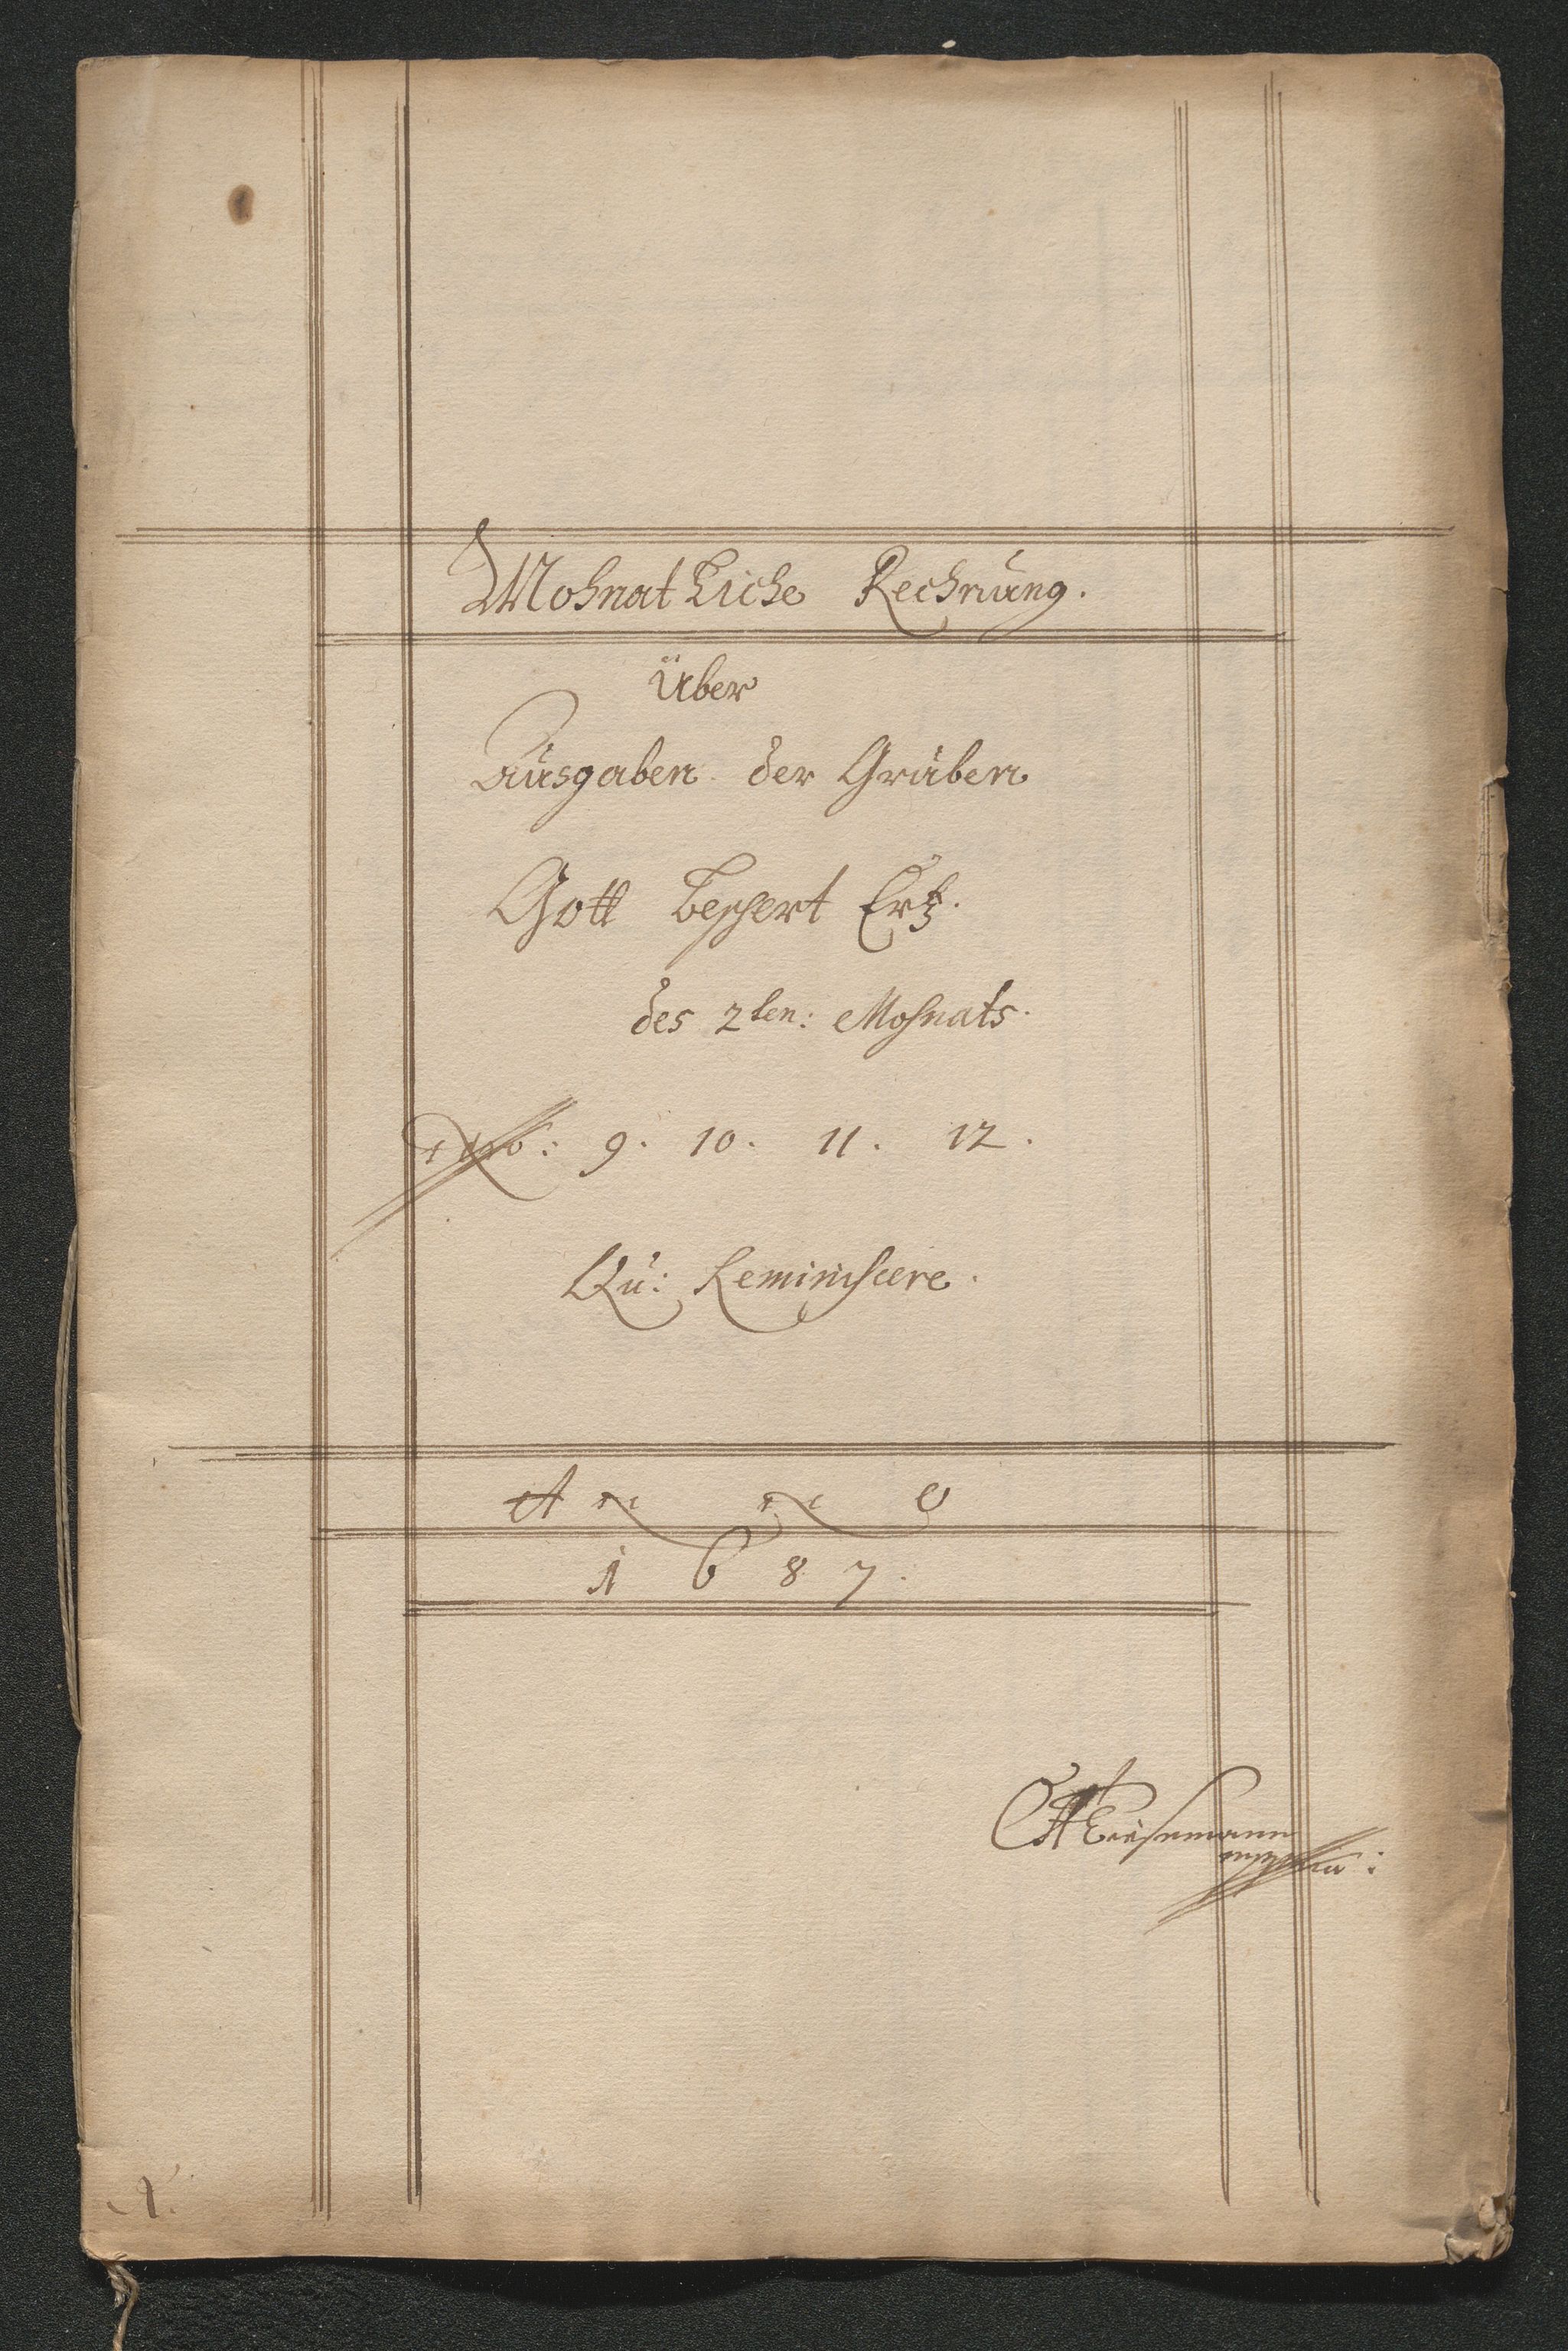 Mohnatliche Rechnung.
Über
Ausgaben der Gruben
Gott beschert Ertz.
des 2ten: Mohnats.
9. 10. 11. 12.
Qu: Reminiscere.
A n n o
1 6 8 7.